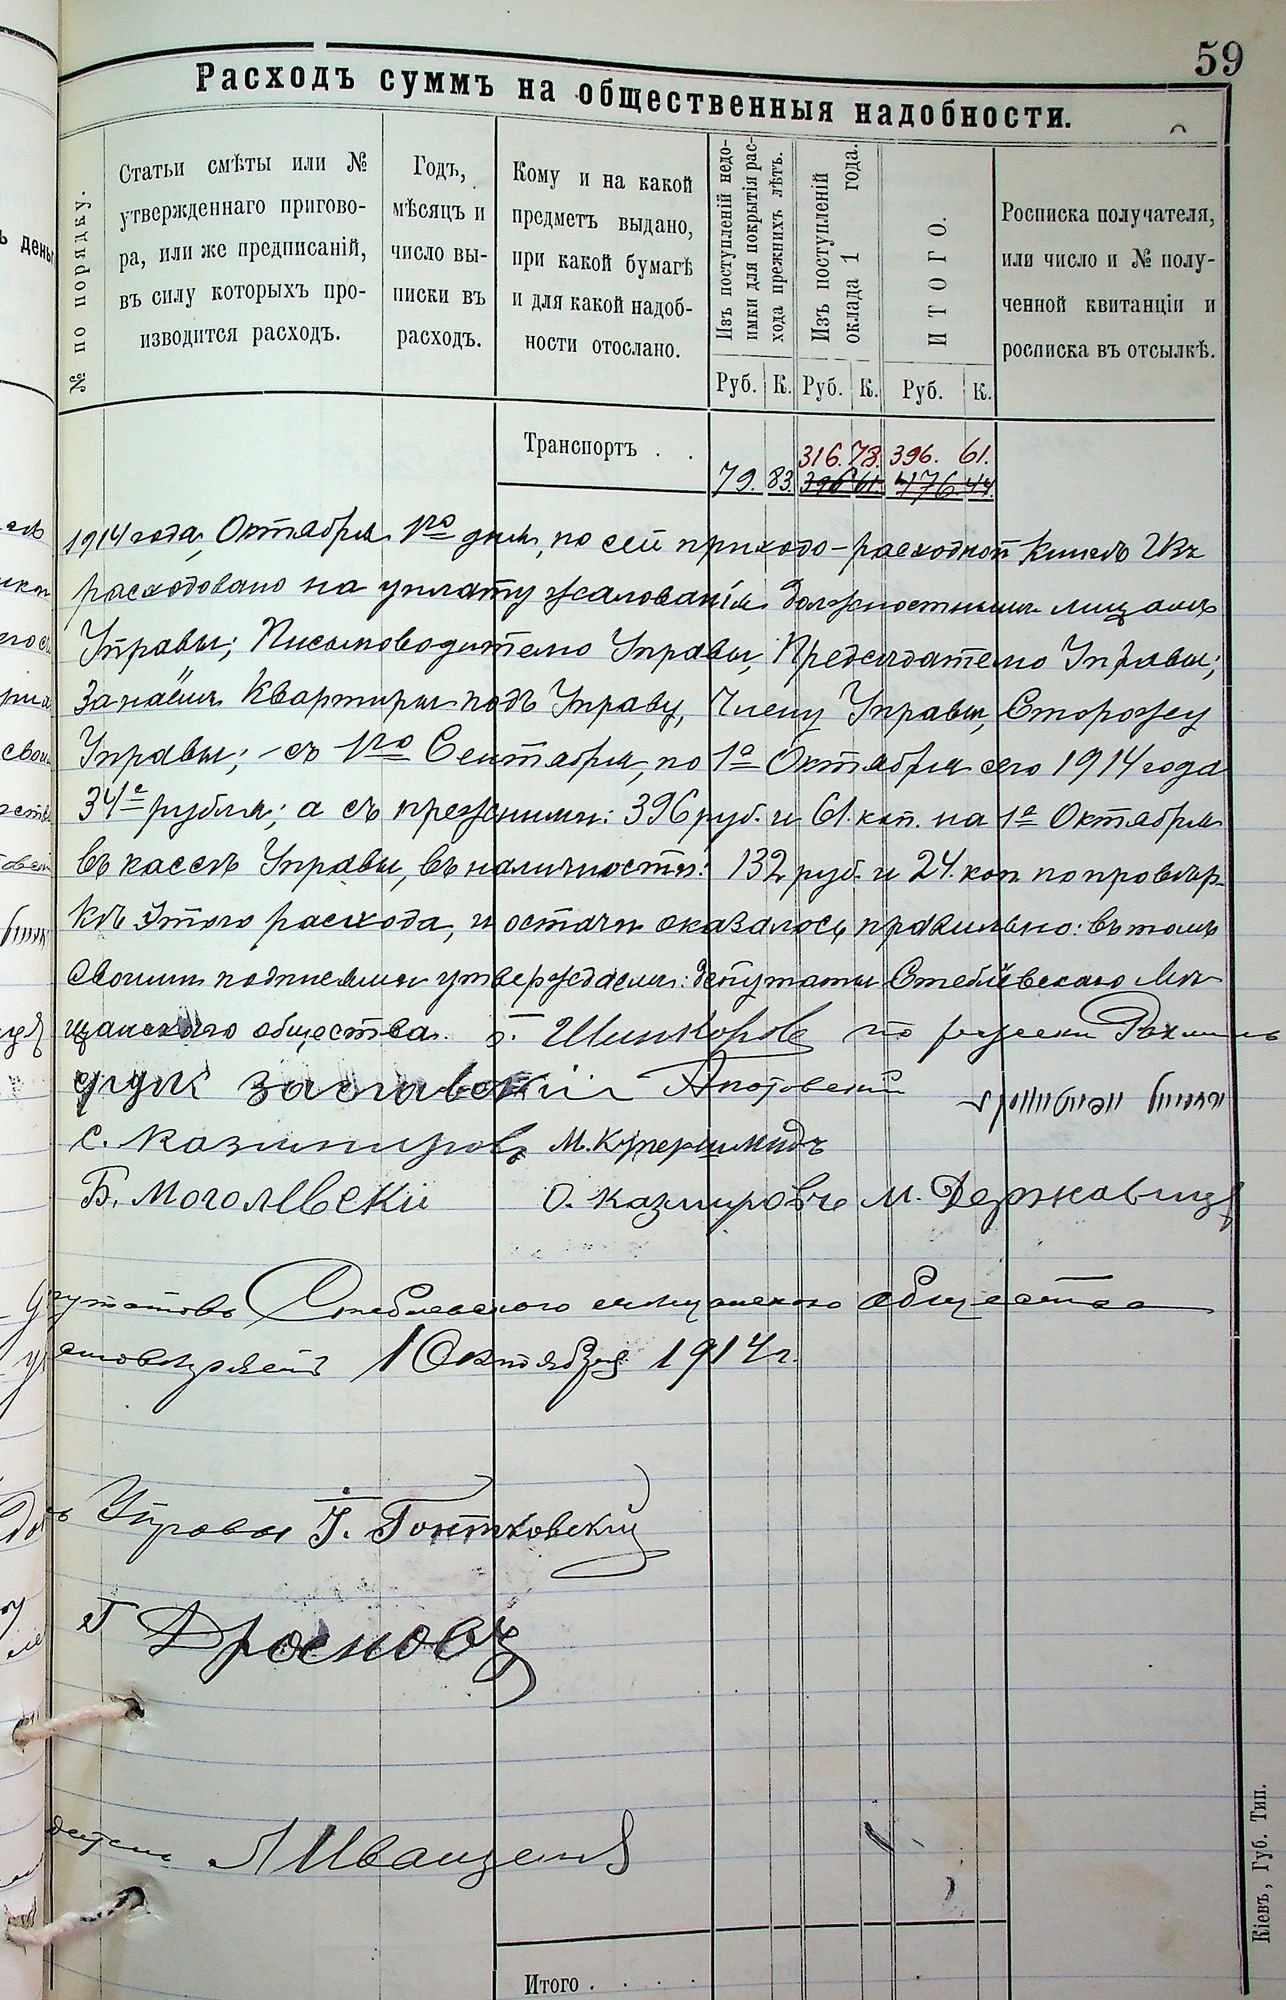 59
Расходъ суммъ на общественныя надобности.
№ по порядку.
Статьи смѣты или №
утвержденнаго пригово-
ра, или же предписаній,
въ силу которыхъ про-
изводится расходъ.
Годъ,
мѣсяцъ и
число вы-
писки въ
расходъ.
Кому и на какой
предметъ выдано,
при какой бумагѣ
и для какой надоб-
ности отослано.
Изъ поступленій недо-
имки для покрытія рас-
хода прежнихъ лѣтъ.
Изъ поступленій
оклада 1 года.
ИТОГО.
Росписка получателя,
или число и № полу-
ченной квитанціи и
росписка въ отсылкѣ.
Руб. К. Руб. К. Руб. К.
316. 78. 396. 61.
Транспортъ . .
79. 83. 396 61. 476. 44.
1914 года, Октября 1го дня, по сей приходо-расходной Книгѣ Из
расходовано на уплату жалованія должностнымъ лицамъ
Управы; Письмоводителю Управы, Председателю Управы;
За наёмъ Квартиры подъ Управу, Члену Управы, Сторожу
Управы; съ 1го Сентября, по 1е Октября сего 1914 года
34е рубля; а съ прежними: 396 руб. и 61. коп. на 1е Октября
въ кассѣ Управы, въ наличности: 132 руб. и 24. коп. по провѣр-
кѣ этого расхода, и остачи оказалось правильно: въ томъ
своими подписями утверждаемъ: депутаты Стеблёвскаго Мѣ
щанскаго общества.
Заславскій
С. Казимировъ М. Купершмидъ
Б. Моголевскій О. Казмировъ М. Державецъ
Стеблевского мещанского общества
1 Октября 1914 г.
Управы Г. Гонтковскій
Итого . . . .
Кіевъ, Губ. Тип.